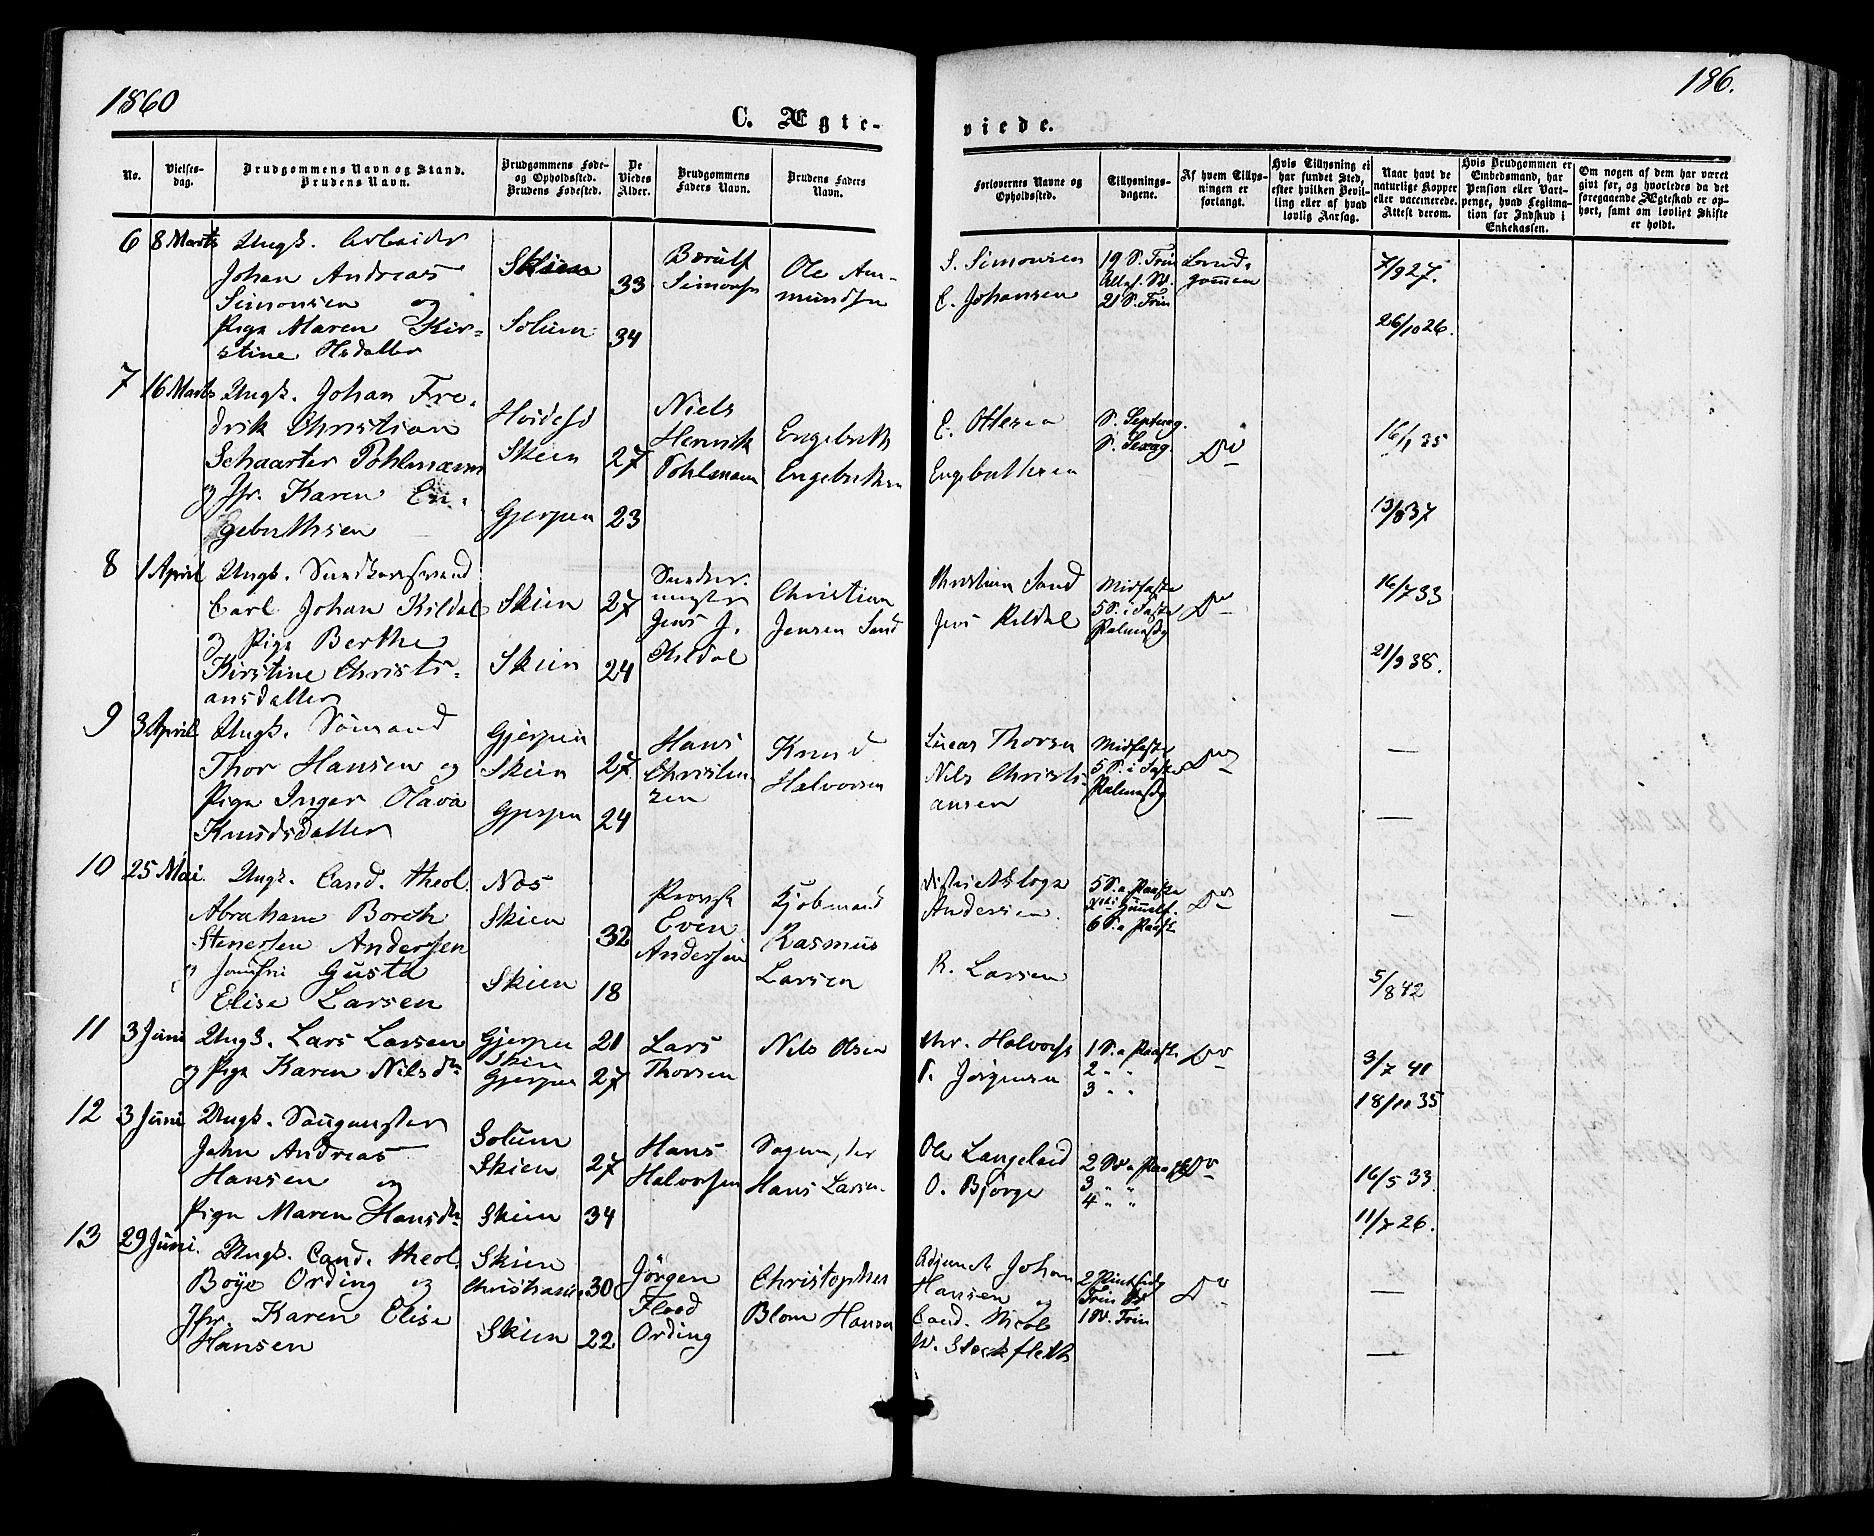 1860
186.
C. Ægteviede.
No.
Vielsesdag.
Brudgommens Navn og Stand.
Brudens Navn.
Brudgommens Føde-
og Opholdsted.
Brudens Fødested.
De
Viedes
Alder.
Brudgommens
Faders Navn.
Brudens Faders
Navn.
Forlovernes Navne og
Opholdsted.
Tillysnings-
dagene.
Af hvem Tillys-
ningen er
forlangt.
Hvis Tillysning ei
har fundet Sted,
efter hvilken Bevil-
ling eller af hvad
lovlig Aarsag.
Naar havt de
naturlige Kopper
eller vaccinerede.
Attest derom.
Hvis Brudgommen er
Enbedsmand, har
Pension eller Vart-
penge, hvad Legitima-
tion for Indskud i
Enkekassen.
Om nogen af dem har været
givt før, og hvorledes da det
foregaaende Ægteskab er op-
hørt, samt om lovligt Skifte
er holdt.
6 8 Marts Ungk. Arbeider
Johan Andreas
Simonsen og
Pige Maren Kir-
stine Olsdatter
Skien 33
Solum 34
Simonsen
Ole Am-
mundsen
S. Simonsen
C. Johansen
19 S. Trin
21 S. Trin
Brud-
gommen
7/9 27.
26/10 26.
7 16 Marts Ungk. Johan Fre-
drik Christian
Schaarter Pohlmann
og Jfr. Karen En-
gebrethsen
Skien 27
Gjerpen 23
Niels
Henrik
Pohlmann
Engebreth
Engebrethsen
E. Ottesen
Engebrethsen
S. Septuag.
S. Sexag.
Do
16/1 35
13/8 37
8 1 April Ungk.
Carl Johan Kildal
og Pige Berthe
Kirstine Christi-
ansdatter
Skien 27
Skien 24
Jens J.
Kildal
Christian
Jensen Sand
Christian Sand
Jens Kildal
Midfaste
5 S. i Faste
Palmesdg
Do
16/7 33
21/9 38.
9 3 April Ungk. Sömand
Thor Hansen og
Pige Inger Olava
Knudsdatter
Gjerpen
Skien 27.
Gjerpen 24
Hans
Christen-
sen
Knud
Halvorsen
Lucas Thorsen
Nils Christi-
ansen
Midfaste
5 S. i Faste
Palmesdg
Do
—
—
10 25 Mai. Ungk. Cand. theol.
Abraham Boreth
Stenersen Anderssen
og Jomfru Gusta
Elise Larsen
Næs
Skien 32
Skien 18
Provst
Even
Anderssen
Kjöbmand
Rasmus
Larsen
Districtslæge
Anderssen.
R. Larsen
5 S. a Paaske
6 S. a Paaske
Do
—
5/8 42
11 3 Juni Ungk. Lars Larsen
og Pige Karen Nilsdtr
Gjerpen 21
Skien
Gjerpen 27
Lars
Thorsen
Nils Olsen
Chr. Halvorsen
T. Jörgensen
1 S. a Paaske
2 " "
3 " "
Do
3/7 40
18/10 35
12 3 Juni Ungk. Saugmester
John Andreas
Hansen og
Pige Maren Hansdtr
Solum
Skien 27
Skien 34
Hans
Halvorsen
Sagmester
Hans Larsen
Ole Langeland
O. Bjørge
2 S. a Paaske
3 " "
4 " "
Do
16/5 33.
11/7 26.
13 29 Juni. Ungk. Cand. theol.
Boye Ording og
Jfr. Karen Elise
Hansen
Skien
Christiania 30
Skien 22
Jörgen
Flood
Ording
Christopher
Blom Hansen
Adjunct Johan
Hansen og
Cand. Nicol
W. Stockfleth
2 Pintsedg
Trin Sd
1 S. Trin
Do
—
—